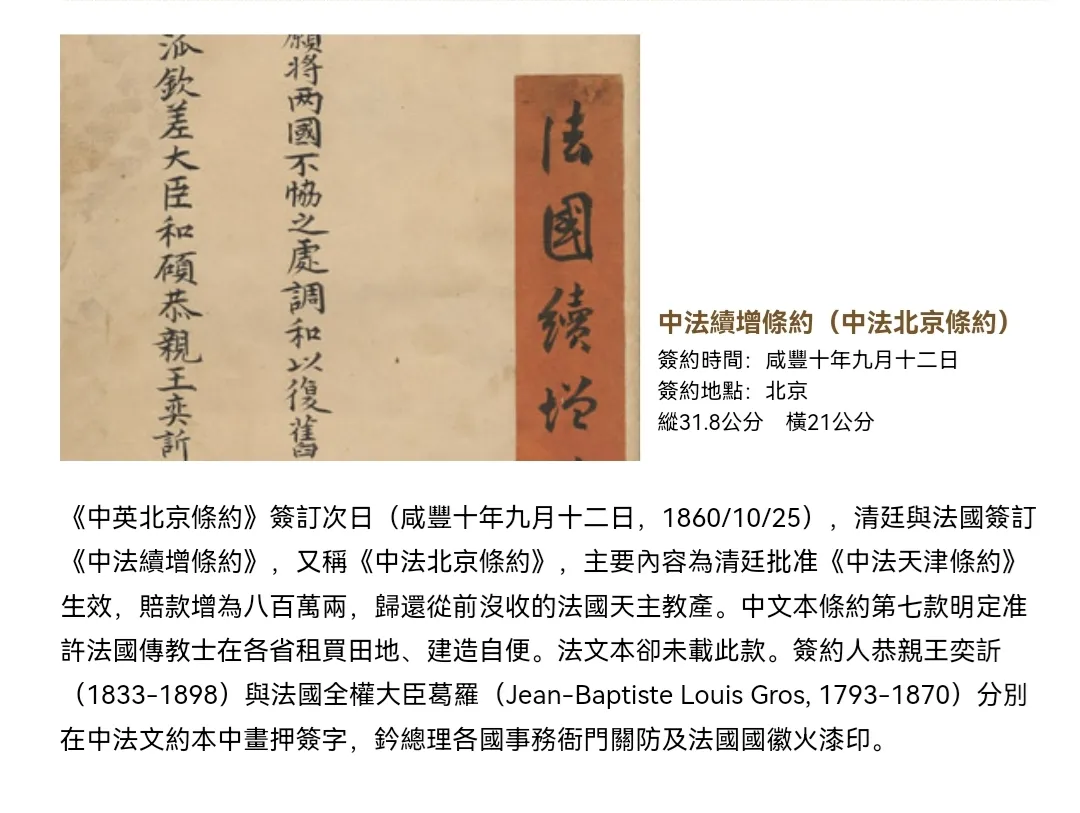 法國續增
願將两國不恊之處調和以復舊
派欽差大臣和碩恭親王奕訢
中法續增條約（中法北京條約）
簽約時間：咸豐十年九月十二日
簽約地點：北京
縱31.8公分　橫21公分
《中英北京條約》簽訂次日（咸豐十年九月十二日，1860/10/25），清廷與法國簽訂
《中法續增條約》，又稱《中法北京條約》，主要內容為清廷批准《中法天津條約》
生效，賠款增為八百萬兩，歸還從前沒收的法國天主教產。中文本條約第七款明定准
許法國傳教士在各省租買田地、建造自便。法文本卻未載此款。簽約人恭親王奕訢
（1833-1898）與法國全權大臣葛羅（Jean-Baptiste Louis Gros, 1793-1870）分別
在中法文約本中畫押簽字，鈐總理各國事務衙門關防及法國國徽火漆印。